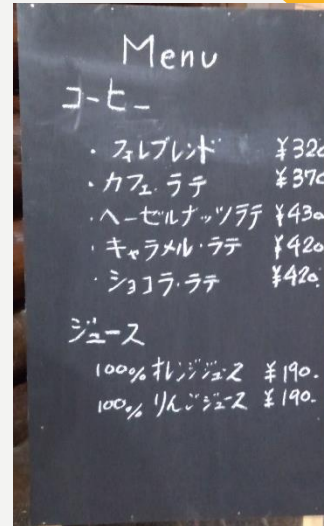 Menu
コーヒー
・フォレブレンド ¥320
・カフェ・ラテ ¥370
・ヘーゼルナッツラテ ¥430
・キャラメル・ラテ ¥420
・ショコラ・ラテ ¥420.
ジュース
100% オレンジジュース ¥190.
100% りんごジュース ¥190.